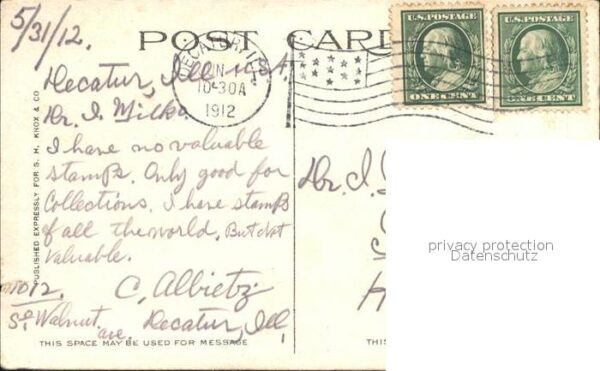 5/31/12.
POST CARD
U.S. POSTAGE
ONE CENT
U.S. POSTAGE
ONE CENT
DECATUR, ILL.
10-30A
1912
Decatur, Ill U.S.A.
Dr. I. Milko
I have no valuable
stamps. Only good for
Collections. I have stamps
of all the world, But not
valuable.
C. Albietz
1012.
So Walnut ave. Decatur, Ill,
Dr. I.
PUBLISHED EXPRESSLY FOR S. H. KNOX & CO
THIS SPACE MAY BE USED FOR MESSAGE
THIS
privacy protection
Datenschutz